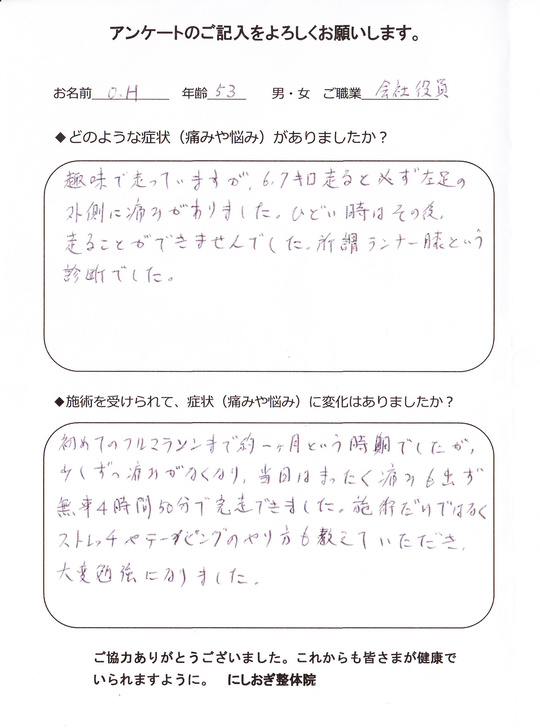 アンケートのご記入をよろしくお願いします。
お名前 O.H 年齢 53 男・女 ご職業 会社役員
◆どのような症状（痛みや悩み）がありましたか？
趣味で走っていますが、6.7キロ走ると必ず左足の
外側に痛みがありました。ひどい時はその後、
走ることができませんでした。所謂ランナー膝という
診断でした。
◆施術を受けられて、症状（痛みや悩み）に変化はありましたか？
初めてのフルマラソンまで約一ヶ月という時期でしたが、
少しずつ痛みがなくなり、当日はまったく痛みも出ず
無事4時間50分で完走できました。施術だけではなく
ストレッチやテーピングのやり方も教えていただき、
大変勉強になりました。
ご協力ありがとうございました。これからも皆さまが健康で
いられますように。 にしおぎ整体院